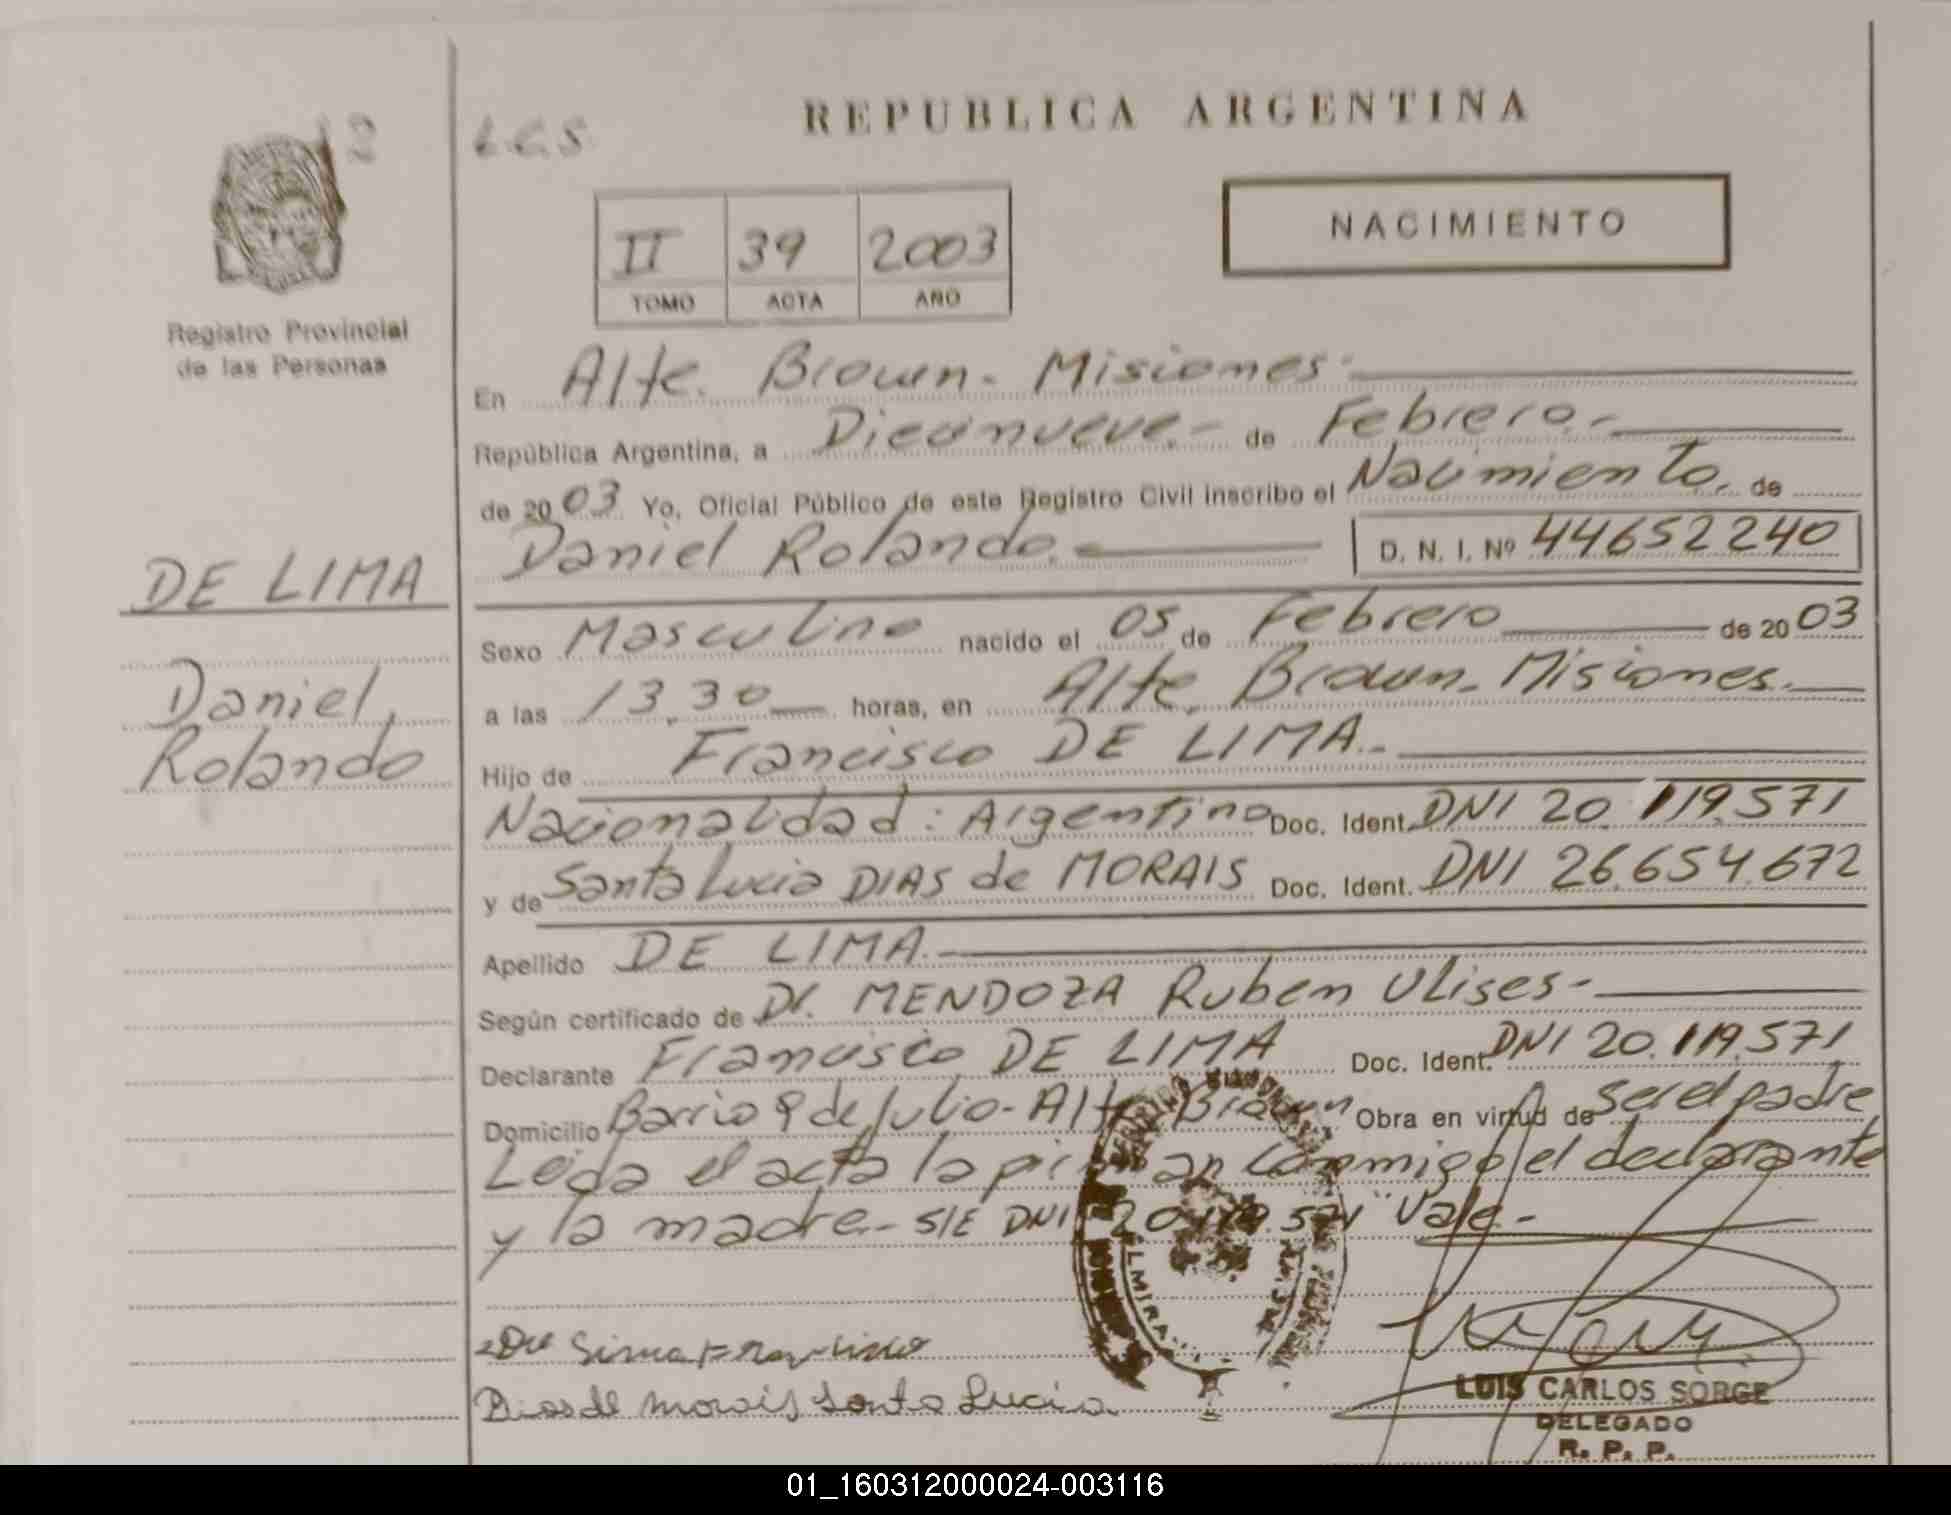 REPUBLICA ARGENTINA
L.C.S.
NACIMIENTO
II 39 2003
TOMO ACTA AÑO
Registro Provincial
de las Personas
DE LIMA
Daniel
Rolando
En Alte. Brown - Misiones
República Argentina, a Diecinueve - de Febrero -
de 2003 Yo, Oficial Público de este Registro Civil inscribo el Nacimiento. de
Daniel Rolando. D. N. I. Nº 44652240
Sexo Masculino nacido el 05 de Febrero de 2003
a las 13,30 horas, en Alte. Brown - Misiones.
Hijo de Francisco DE LIMA.-
Nacionalidad: Argentino Doc. Ident. DNI 20.119.571
y de Santa Lucia DIAS de MORAIS Doc. Ident. DNI 26.654.672
Apellido DE LIMA.
Según certificado de Dr. MENDOZA Ruben Ulises -
Declarante Francisco DE LIMA Doc. Ident. DNI 20.119.571
Domicilio Barrio 9 de Julio - Alte Brown Obra en virtud de ser el padre
Leida el acta la firman conmigo el declarante
y la madre - S/E DNI 20.119.571 "Vale -
Dias de morais Santa Lucia
LUIS CARLOS SORGE
DELEGADO
R. P. P.
01_160312000024-003116